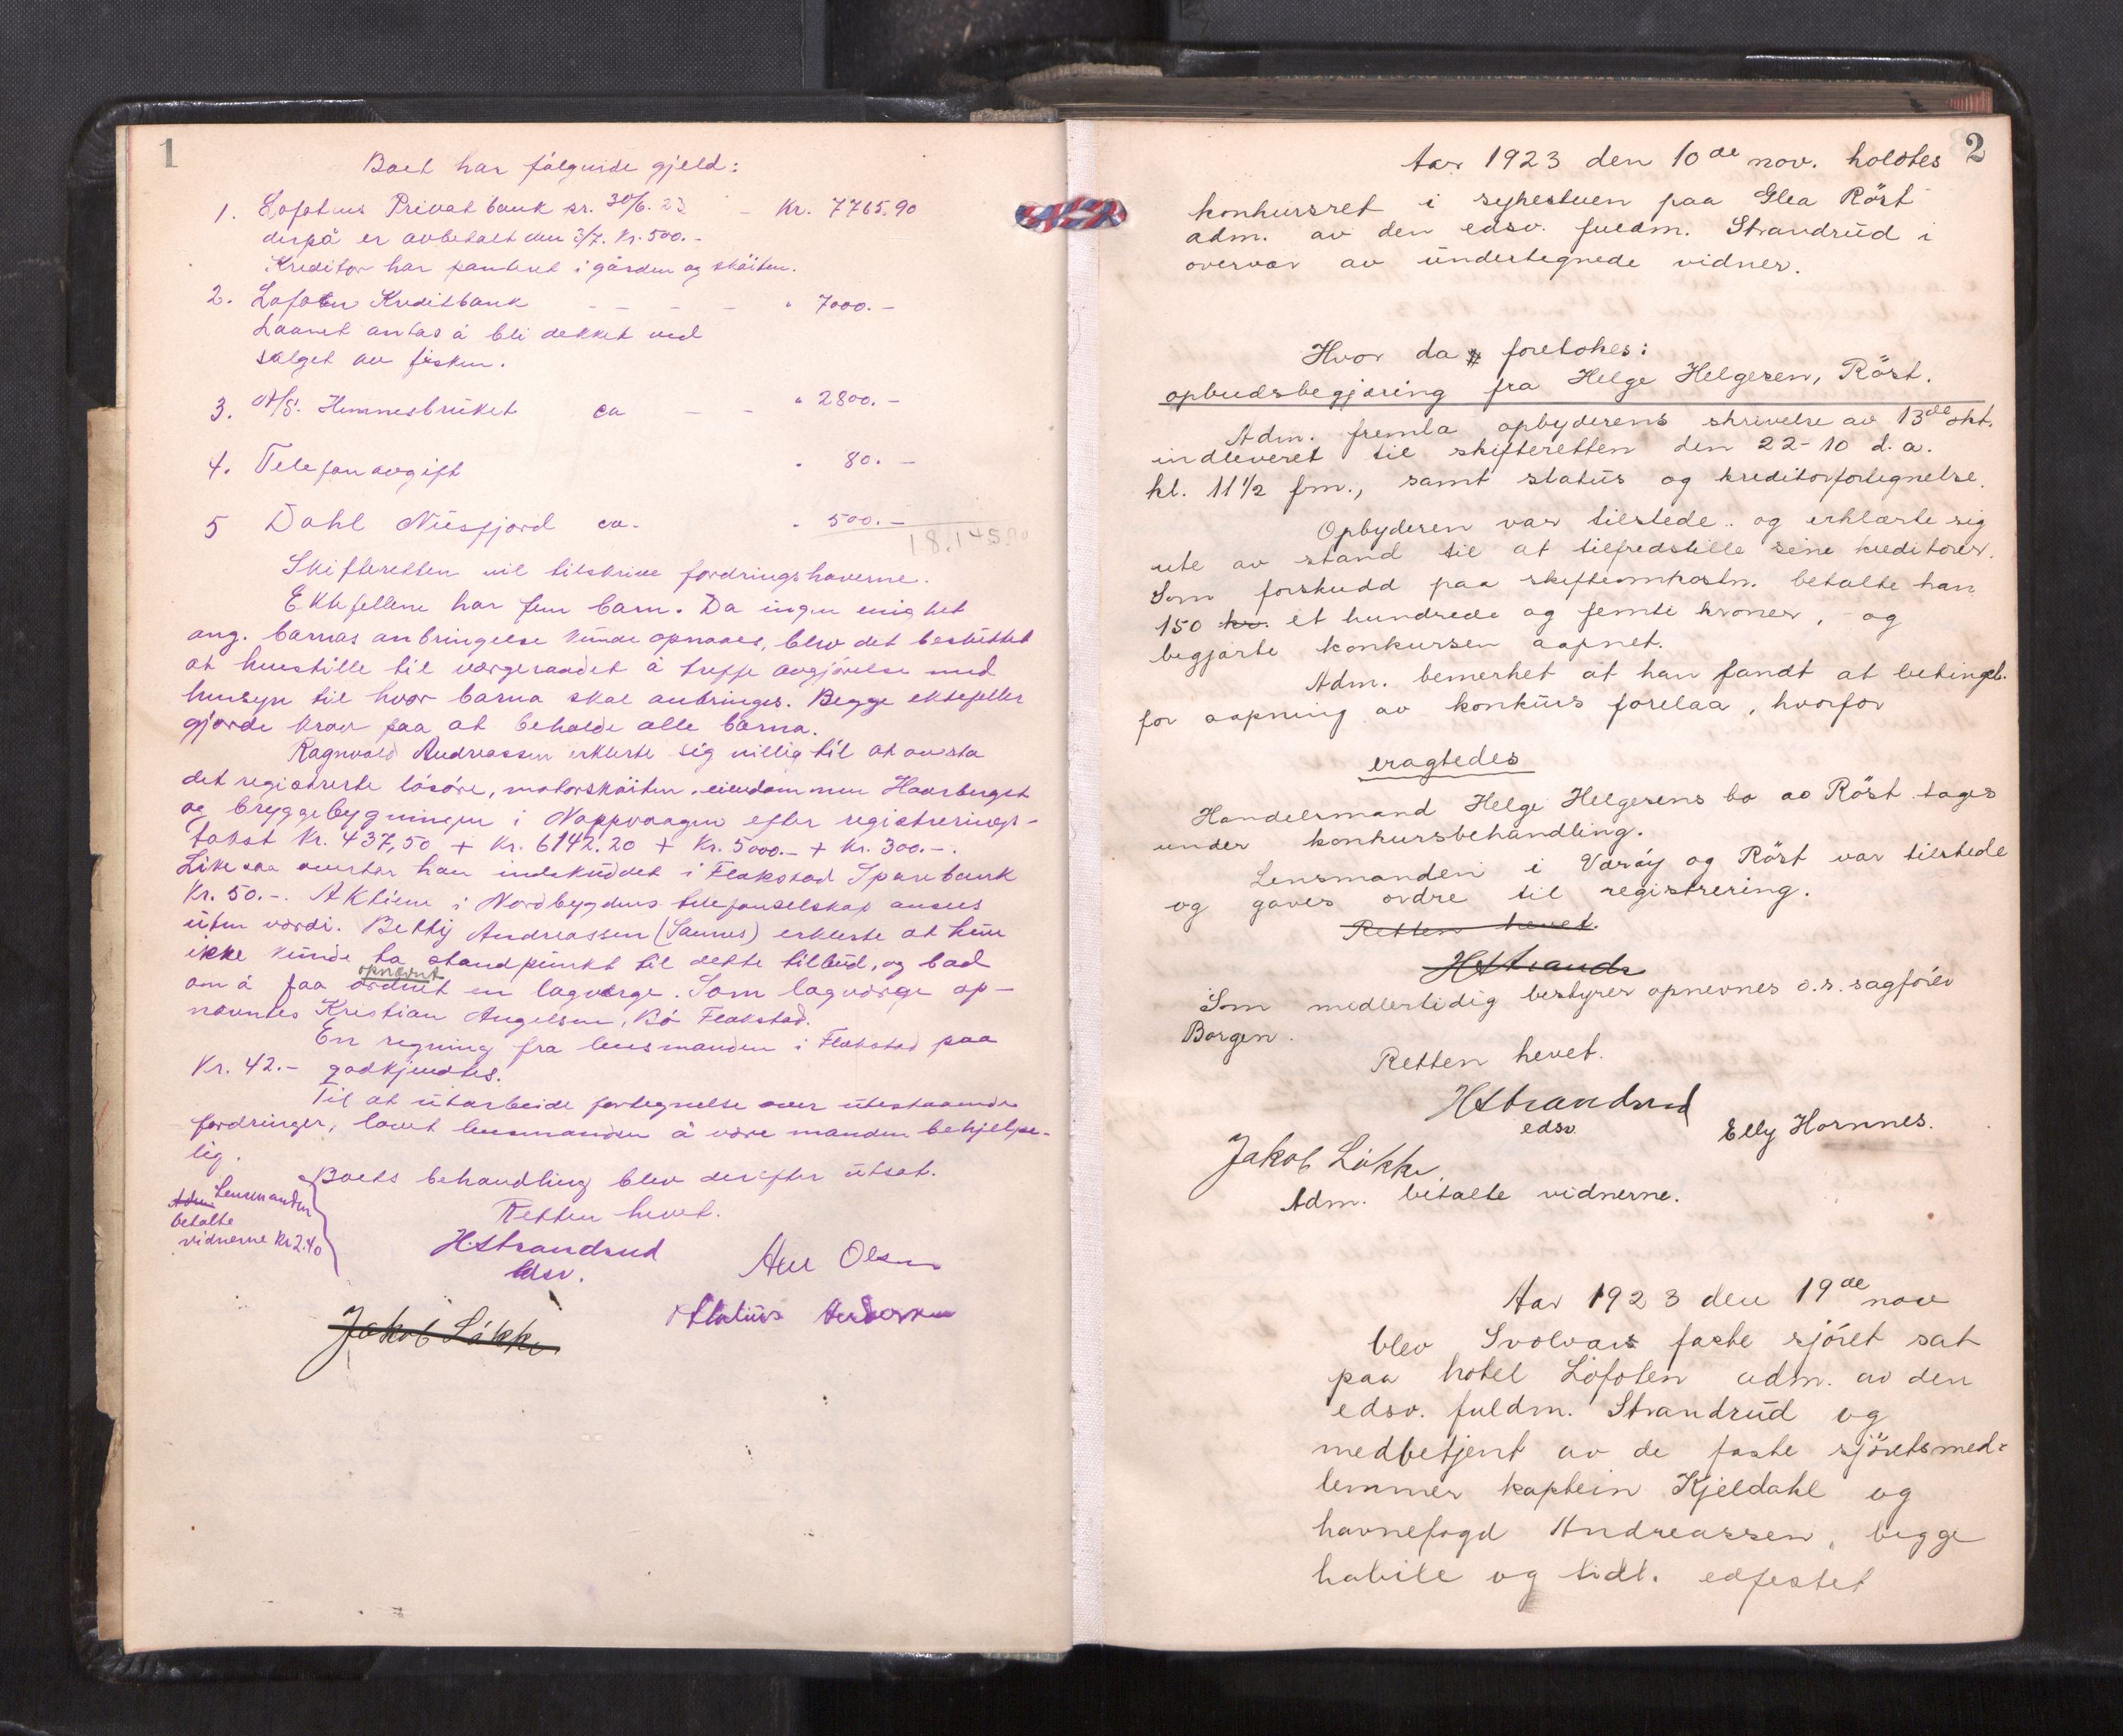 1
Boet har følgende gjeld:
1. Lofotens Privatbank pr. 30/6. 23 – Kr. 7765.90
derpå er avbetalt den 3/7. Kr. 500.-
Kreditor har panteret i gården og skøiten.
2. Lofoten Kreditbank – – – – " 7000.-
Laanet antas å bli dekket ved
salget av fisken.
3. A/S. Hemnesbruket ca – – " 2800.-
4. Telefonavgift " 80.-
5 Dahl Nusfjord ca. " 500.-
18.145.90
Skifteretten vil tilskrive fordringshaverne.
Ektefellene har fem barn. Da ingen enighet
ang. barnas anbringelse kunde opnaaes, blev det besluttet
at henstille til værgeraadet å treffe avgjörelse med
hensyn til hvor barna skal anbringes. Begge ektefeller
gjorde krav paa at beholde alle barna.
Ragnvald Andreassen erklerte sig villig til at overta
det registrerte lösöre, motorsköiten, eiendommen Haarberget
og bryggebygningen i Nappvaagen efter registrerings-
takst Kr. 437,50 + Kr. 6142.20 + Kr. 5000.- + Kr. 300.-.
Likesaa overtar han indskuddet i Flakstad Sparebank
Kr. 50.-. Aktiene i Nordbygdens telefonselskap ansees
uten værdi. Betty Andreassen (Sannes) erklerte at hun
ikke kunde ta standpunkt til dette tilbud, og bad
opnævnt
om å faa ordnet en lagværge. Som lagværge op-
nævntes Kristian Angelsen, Bö Flakstad.
En regning fra lensmanden i Flakstad paa
Kr. 42.- godkjendtes.
Til at utarbeide fortegnelse over utestaaende
fordringer, lovet lensmanden å være manden behjelpe-
lig.
Boets behandling blev derefter utsat.
Adm Lensmanden
betalte
vidnerne Kr 2.40
Retten hevet.
HStrandrud
edsv.
Olsen
Statius Andersen
Jakob Løkke
2
Aar 1923 den 10de nov. holdtes
konkursret i sykestuen paa Glea Röst
adm. av den edsv. fuldm. Strandrud i
overvær av undertegnede vidner.
Hvor da foretokes:
opbudsbegjæring fra Helge Helgesen, Röst.
Adm. fremla opbyderens skrivelse av 13de okt.
indleveret til skifteretten den 22-10 d.a.
kl. 11 1/2 fm., samt status og kreditorfortegnelse.
Opbyderen var tilstede.. og erklærte sig
ute av stand til at tilfredstille sine kreditorer.
Som forskudd paa skifteomkostn. betalte han
150 kr. et hundrede og femti kroner, - og
begjærte konkursen aapnet.
Adm. bemerket at han fandt at betingels.
for aapning av konkurs forelaa, hvorfor
eragtedes
Handelsmand Helge Helgesens bo av Röst tages
under konkursbehandling.
Lensmanden i Værøy og Röst var tilstede
og gaves ordre til registrering.
Retten hevet.
HStrandr
Som medlertidig bestyrer opnevnes o.r. sagförer
Borgen.
Retten hevet.
HStrandrud
edsv
Elly Hornnes.
Jakob Løkke
Adm. betalte vidnerne.
Aar 1923 den 19de nov
blev Svolvær faste sjöret sat
paa hotel Lofoten adm. av den
edsv. fuldm. Strandrud og
medbetjent av de faste sjöretsmed=
lemmer kaptein Kjeldahl og
havnefogd Andreassen, begge
habile og tidl. edfestet